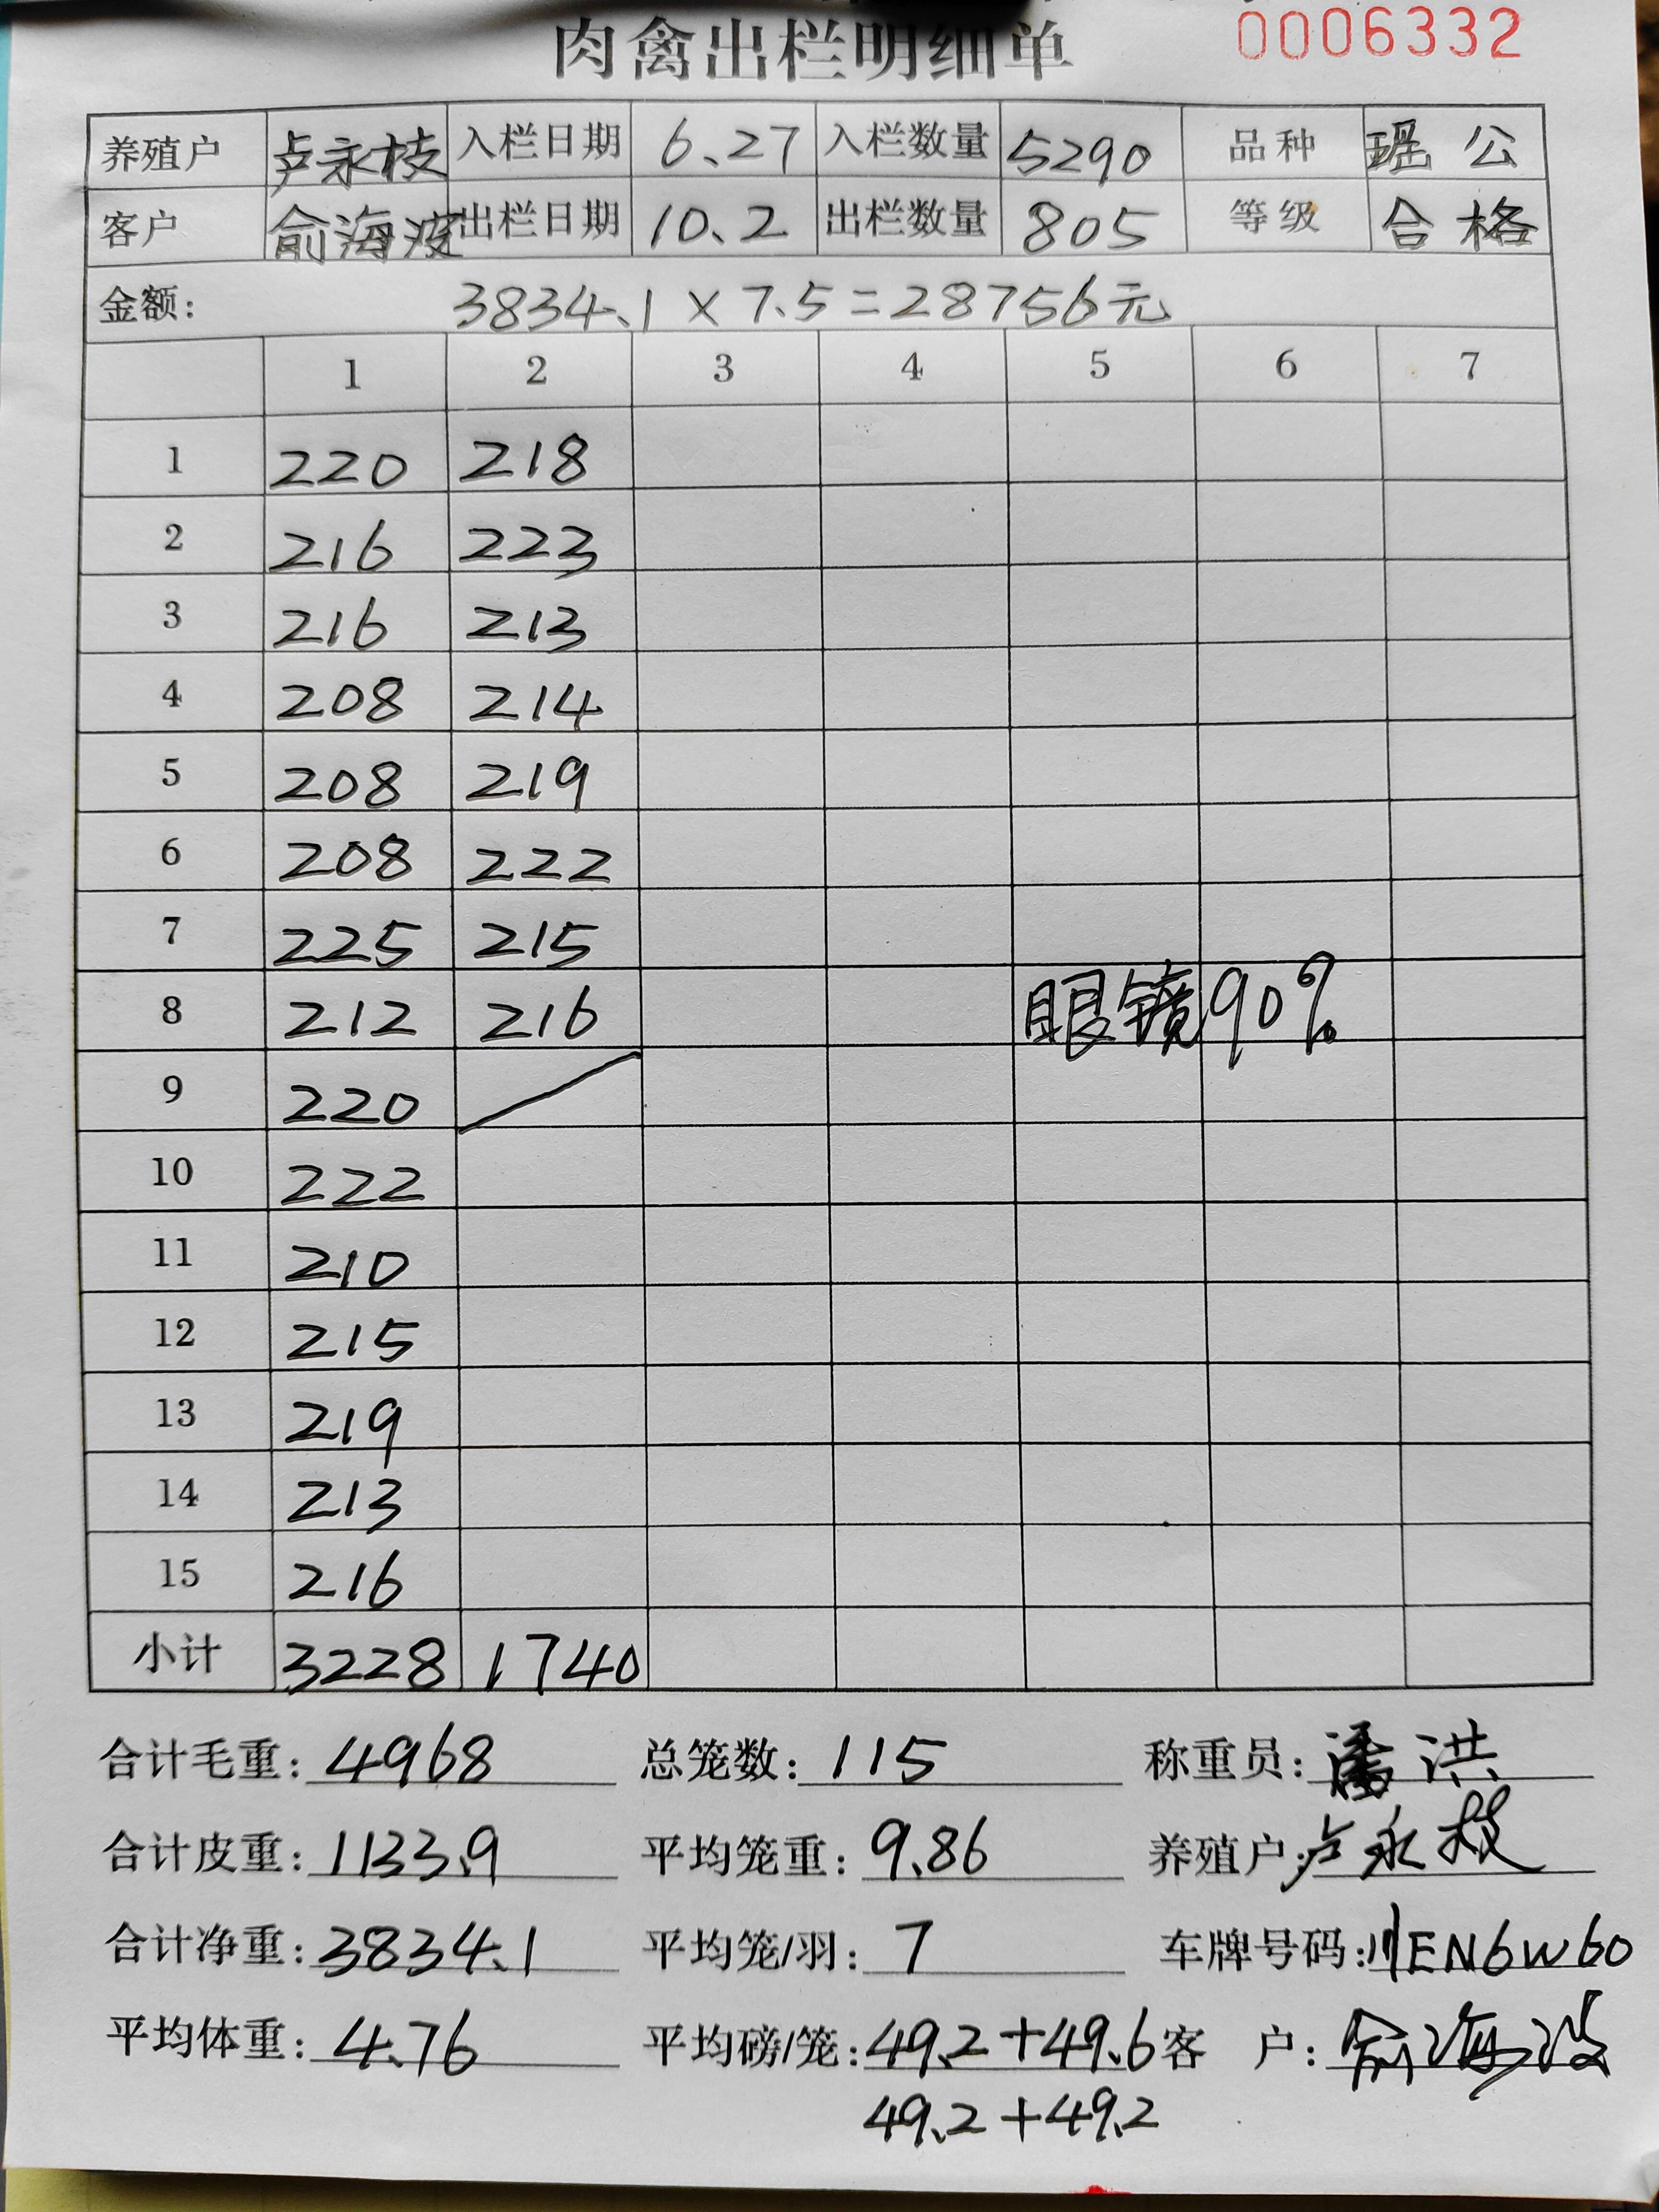 肉禽出栏明细单 0006332
养殖户 卢永枝 入栏日期 6.27 入栏数量 5290 品种 瑶公
客户 俞海波 出栏日期 10.2 出栏数量 805 等级 合格
金额: 3834.1×7.5=28756元
1 2 3 4 5 6 7
1 220 218
2 216 223
3 216 213
4 208 214
5 208 219
6 208 222
7 225 215
8 212 216 眼镜90%
9 220
10 222
11 210
12 215
13 219
14 213
15 216
小计 3228 1740
合计毛重: 4968 总笼数: 115 称重员: 潘洪
合计皮重: 1133.9 平均笼重: 9.86 养殖户: 卢永枝
合计净重: 3834.1 平均笼/羽: 7 车牌号码: 川EN6W60
平均体重: 4.76 平均磅/笼: 49.2+49.6 客 户: 俞海波
49.2+49.2